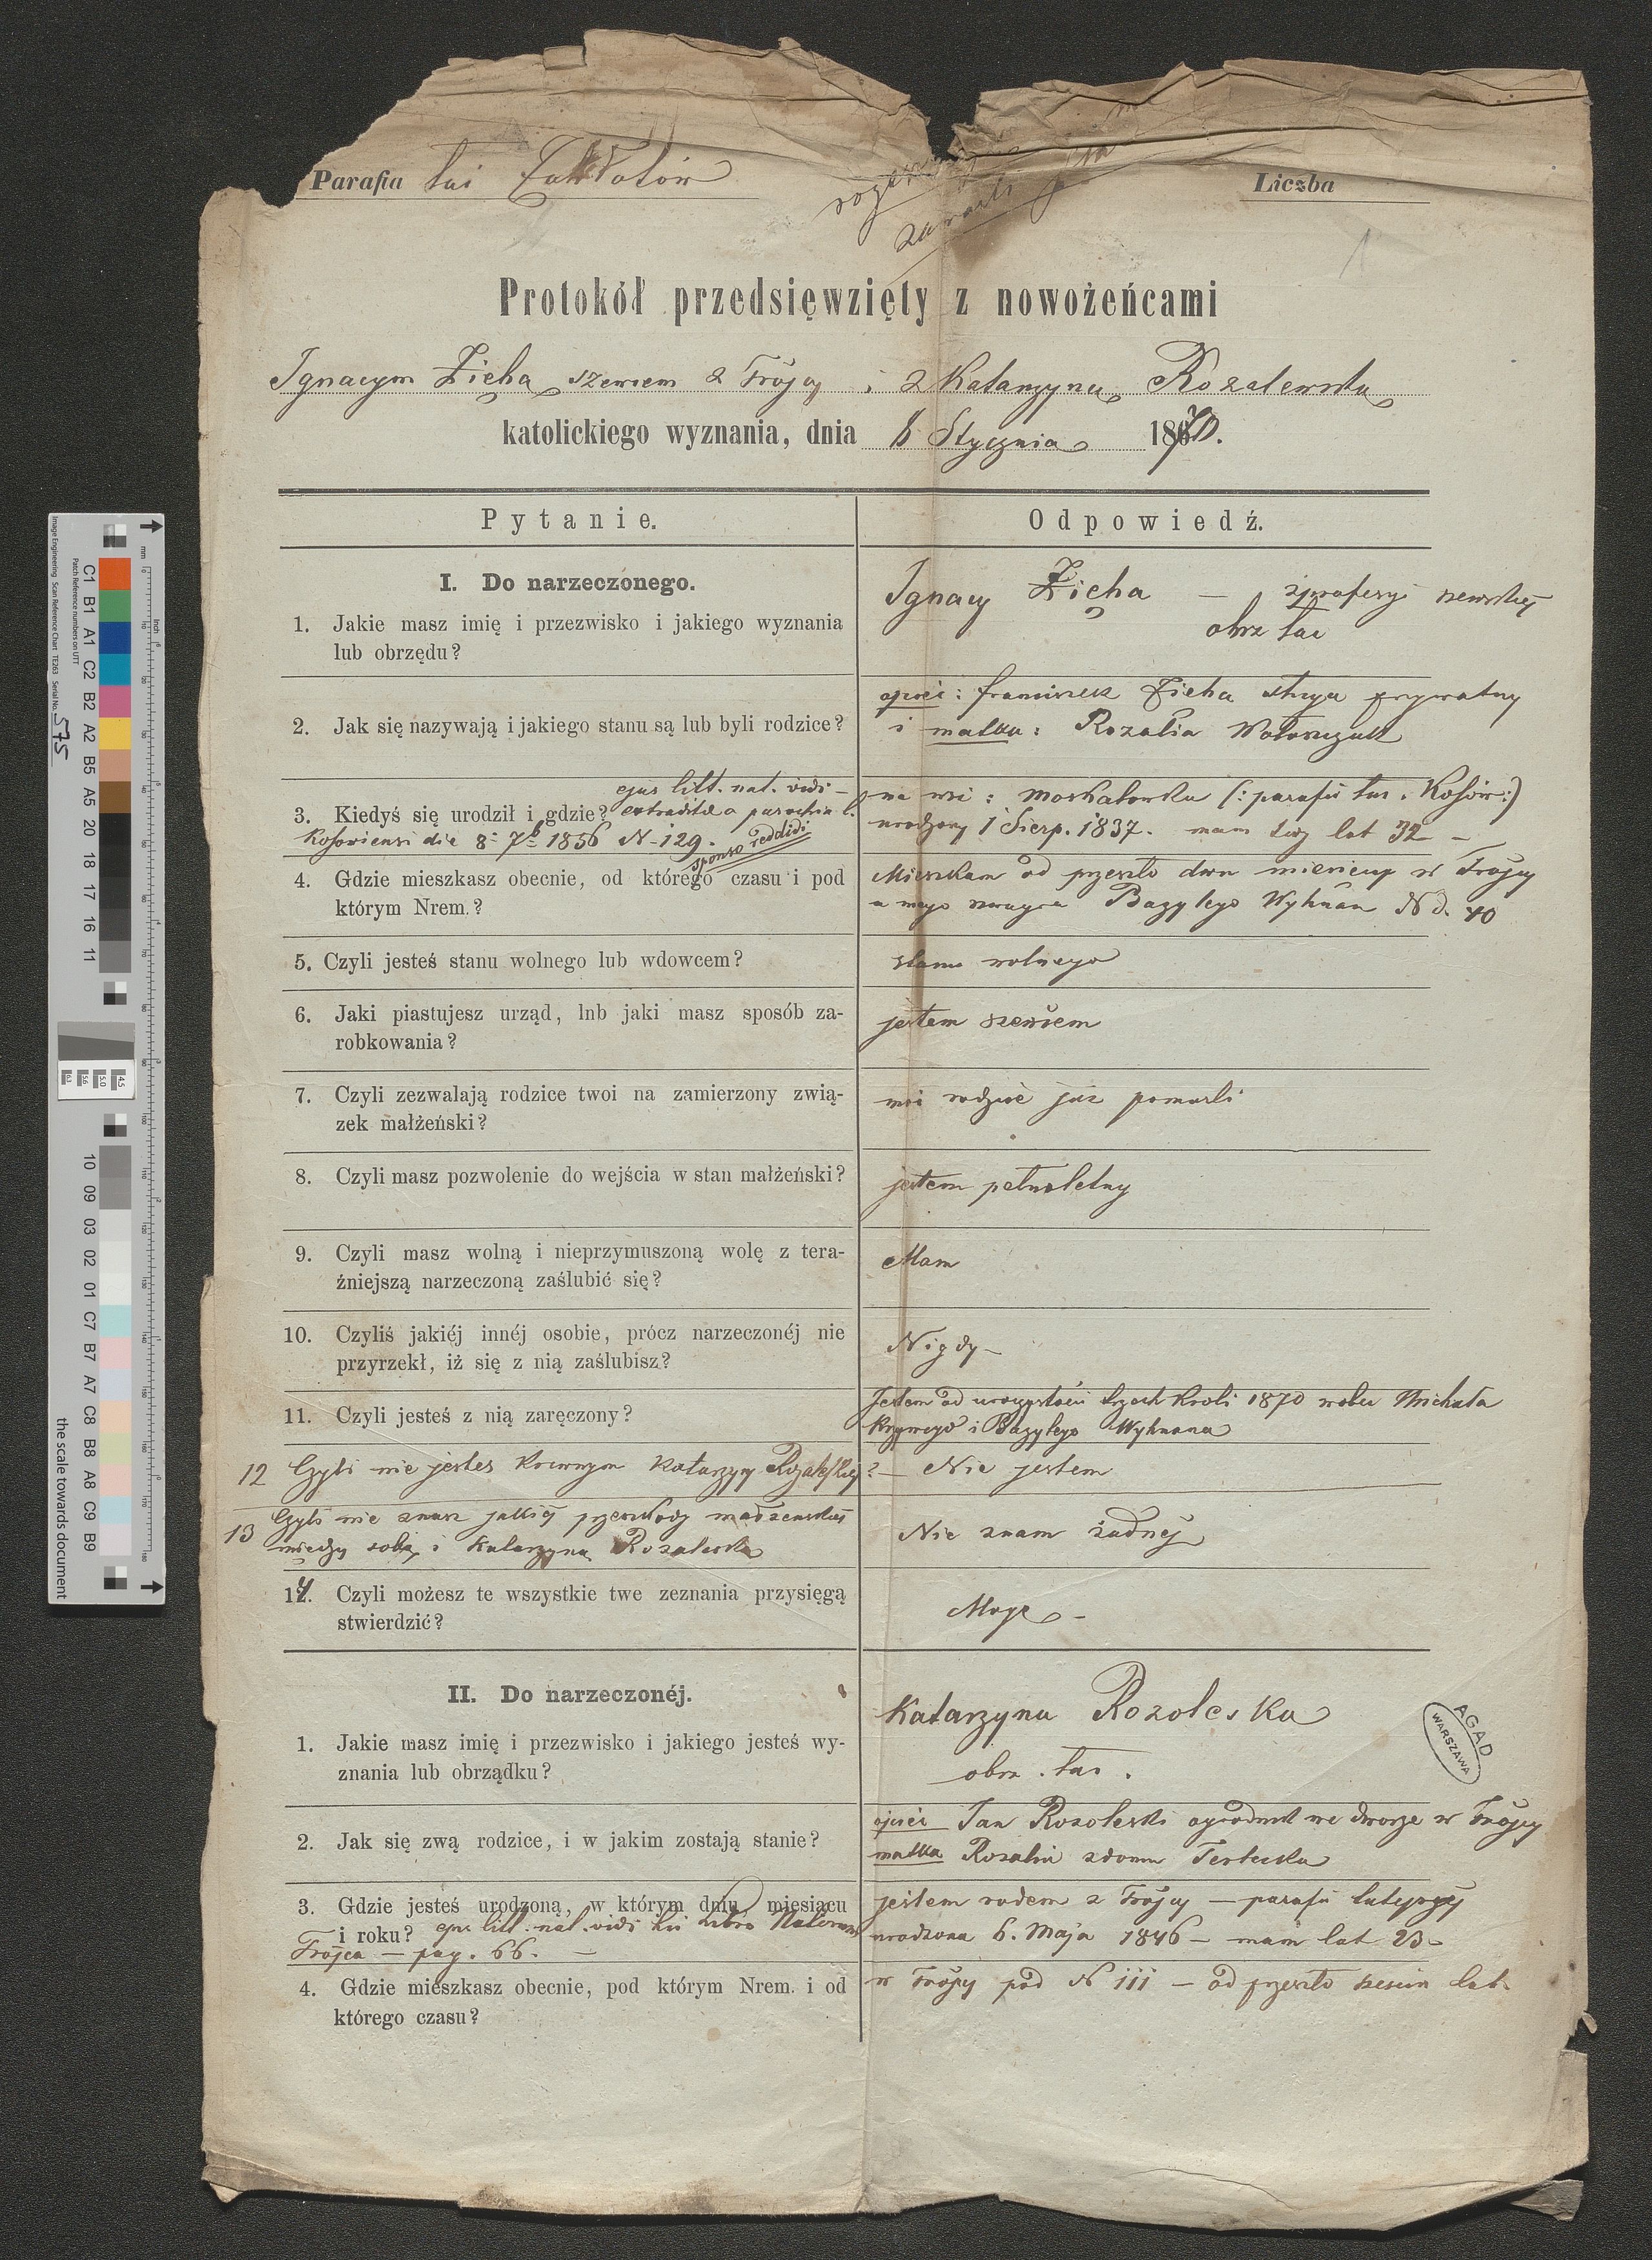 Parafia łać Zabłotów
Liczba
1
Protokół przedsięwzięty z nowożeńcami
Ignacym Zięba szewcem z Trójcy i z Katarzyną Rozalewską
katolickiego wyznania, dnia 6 Stycznia 1870.
Pytanie.
Odpowiedź.
I. Do narzeczonego.
1. Jakie masz imię i przezwisko i jakiego wyznania
lub obrzędu?
Ignacy Zięba — z profesyi szewskiej
obrz łać
2. Jak się nazywają i jakiego stanu są lub byli rodzice?
ojciec: franciszek Zięba prywatny
i matka: Rozalia Wołoszczuk
3. Kiedyś się urodził i gdzie? ejus litt. nat. vidi —
extraditae a parochia l.
Kosoviensi die 8 7b 1856 N-129.
sponso reddidi
na wsi: Moskalówka (: parafii łac. Kosów :)
urodzony 1 Sierp. 1837. mam lat 32 —
4. Gdzie mieszkasz obecnie, od którego czasu i pod
którym Nrem.?
Mieszkam od przeszło dwu miesięcy w Trójcy
u mego szwagra Bazylego Wyhnan N d. 40
5. Czyli jesteś stanu wolnego lub wdowcem?
stanu wolnego
6. Jaki piastujesz urząd, lnb jaki masz sposób za-
robkowania?
jestem szewcem
7. Czyli zezwalają rodzice twoi na zamierzony zwią-
zek małżeński?
moi rodzice już pomarli
8. Czyli masz pozwolenie do wejścia w stan małżeński?
jestem pełnoletny
9. Czyli masz wolną i nieprzymuszoną wolę z tera-
źniejszą narzeczoną zaślubić się?
Mam
10. Czyliś jakiéj innéj osobie, prócz narzeczonéj nie
przyrzekł, iż się z nią zaślubisz?
Nigdy —
11. Czyli jesteś z nią zaręczony?
Jestem od uroczystości trzech Króli 1870 wobec Michała
Krzywego i Bazylego Wyhnana
12 Czyli nie jesteś krewnym Katarzyny Rozaleskiej? —
Nie jestem
13 Czyli nie znasz jakiéj przeszkody małżeńskiéj
między sobą i Katarzyną Rozaleską
Nie znam żadnéj
14. Czyli możesz te wszystkie twe zeznania przysięgą
stwierdzić?
Mogę —
II. Do narzeczonéj.
1. Jakie masz imię i przezwisko i jakiego jesteś wy-
znania lub obrządku?
Katarzyna Rozoleska
obrz. łać.
AGAD
WARSZAWA
2. Jak się zwą rodzice, i w jakim zostają stanie?
ojciec Jan Rozoleski ogrodnik we dworze w Trójcy
matka Rozalia z domu Terlecka
3. Gdzie jesteś urodzoną, w którym dniu miesiącu
i roku? ejus litt. nat. vidi libro Natorum
Trójca — pag. 66. —
jestem rodem z Trójcy — parafii tutejszej
urodzona 6. Maja 1846 — mam lat 23 —
4. Gdzie mieszkasz obecnie, pod którym Nrem. i od
którego czasu?
w Trójcy pod N 111 — od przeszło sześciu lat
575
the scale towards document